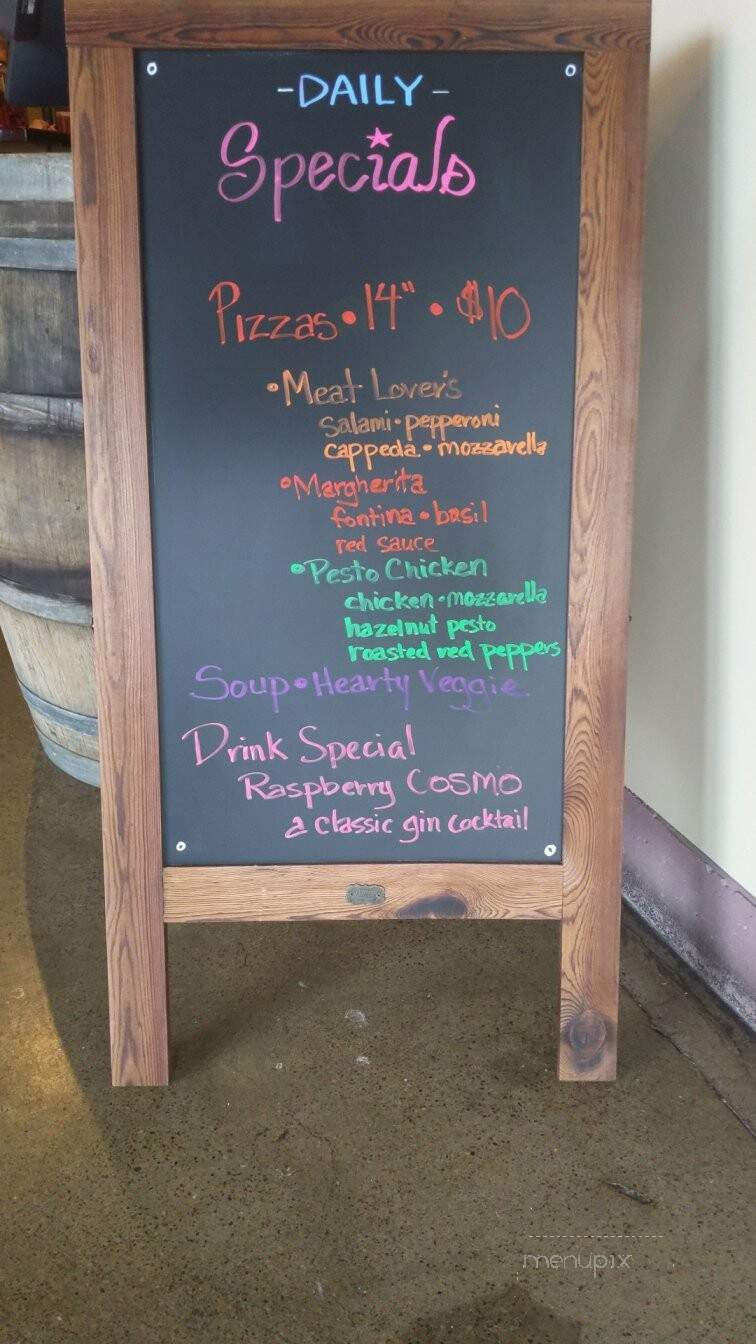 -DAILY-
Specials
Pizzas • 14" • $10
• Meat Lover's
salami • pepperoni
cappeda • mozzarella
• Margherita
fontina • basil
red sauce
• Pesto Chicken
chicken • mozzarella
hazelnut pesto
roasted red peppers
Soup • Hearty Veggie
Drink Special
Raspberry COSMO
a classic gin cocktail
menupix